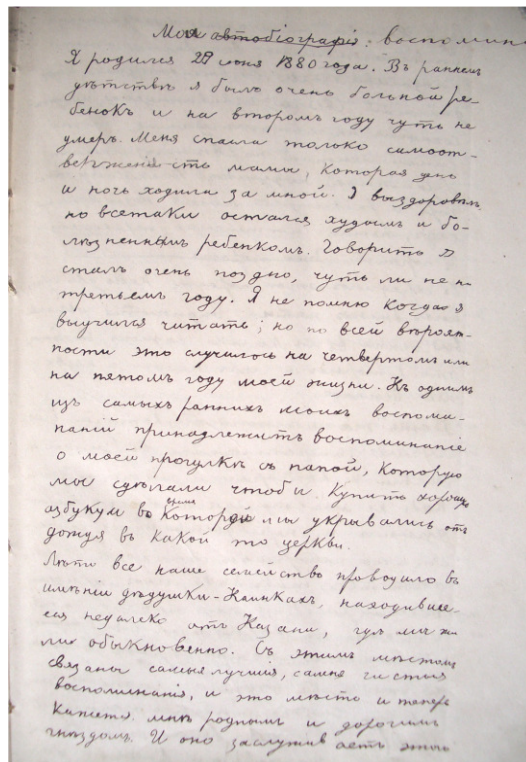 Мои автобіографія. воспомин
Я родился 29 іюня 1880 года. Въ раннемъ
дѣтствѣ я былъ очень больной ре-
бенокъ и на второмъ году чуть не
умеръ. Меня спасла только самоот-
верженность мамы, которая день
и ночь ходила за мной. Я выздоровѣлъ
но всетаки остался худымъ и бо-
лѣзненнымъ ребенкомъ. Говорить я
сталъ очень поздно, чуть ли не на
третьемъ году. Я не помню когда я
выучился читать; но по всей вѣроят-
ности это случилось на четвертомъ или
на пятомъ году моей жизни. Къ однимъ
изъ самыхъ раннихъ моихъ воспоми-
наній принадлежитъ воспоминаніе
о моей прогулкѣ съ папой, которую
мы сдѣлали чтобы купить хорошую
азбуку во время которой мы укрывались отъ
дождя въ какой то церкви.
Лѣто все наше семейство проводило въ
имѣніи дѣдушки-Каинкахъ, находивше-
ся недалеко отъ Казани, гдѣ мы жи
ли обыкновенно. Съ этимъ мѣстомъ
связаны самыя лучшія, самыя чистыя
воспоминанія, и это мѣсто и теперь
кажется мнѣ роднымъ и дорогимъ
гнѣздомъ. И оно заслуживаетъ этого